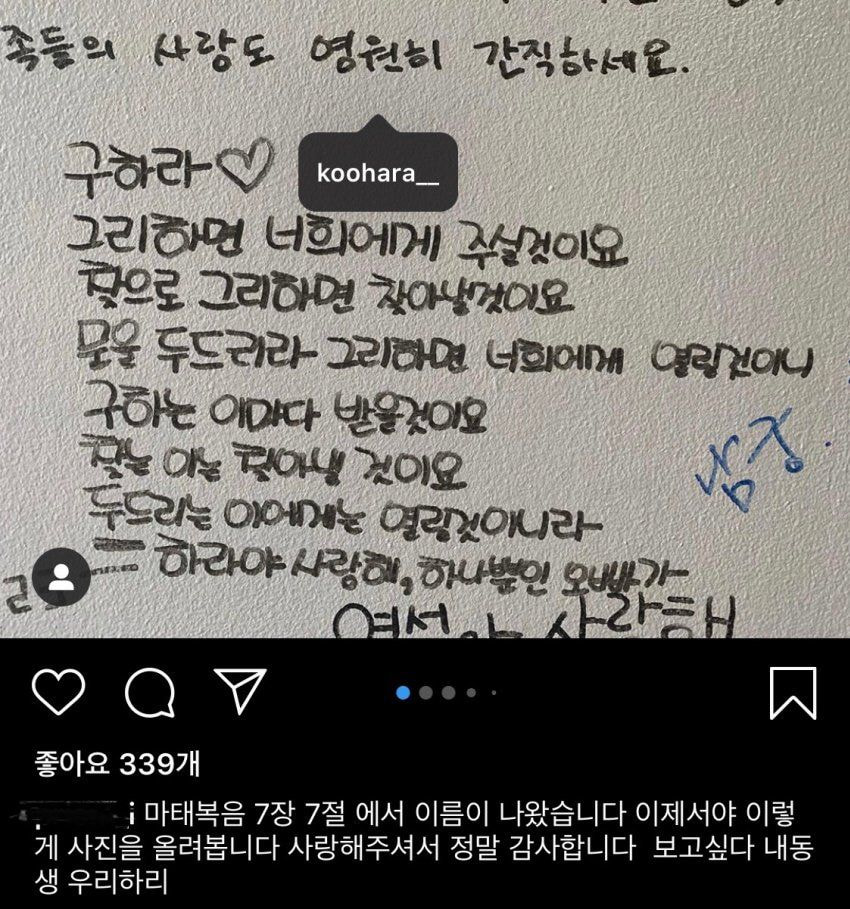 족들의 사랑도 영원히 간직하세요.
구하라♡
koohara__
그리하면 너희에게 주실것이요
찾으로 그리하면 찾아낼것이요
문을 두드리라 그리하면 너희에게 열릴것이니
구하는 이마다 받을것이요
찾는 이는 찾아낼 것이요
두드리는 이에게는 열릴것이니라
- 하라야 사랑해, 하나뿐인 오빠가-
사랑해
좋아요 339개
마태복음 7장 7절 에서 이름이 나왔습니다 이제서야 이렇
게 사진을 올려봅니다 사랑해주셔서 정말 감사합니다 보고싶다 내동
생 우리하리